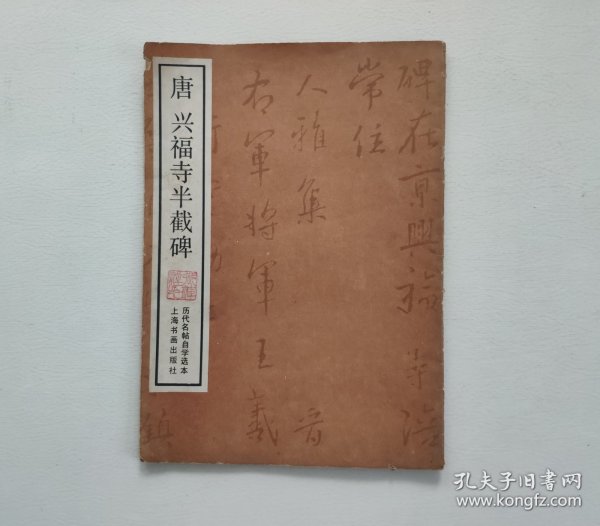 唐 兴福寺半截碑
历代名帖自学选本
上海书画出版社
碑在京興福寺陪
常住
人雅集 晋
右軍将軍王羲
鎮
孔夫子旧书网
www.kongfz.com